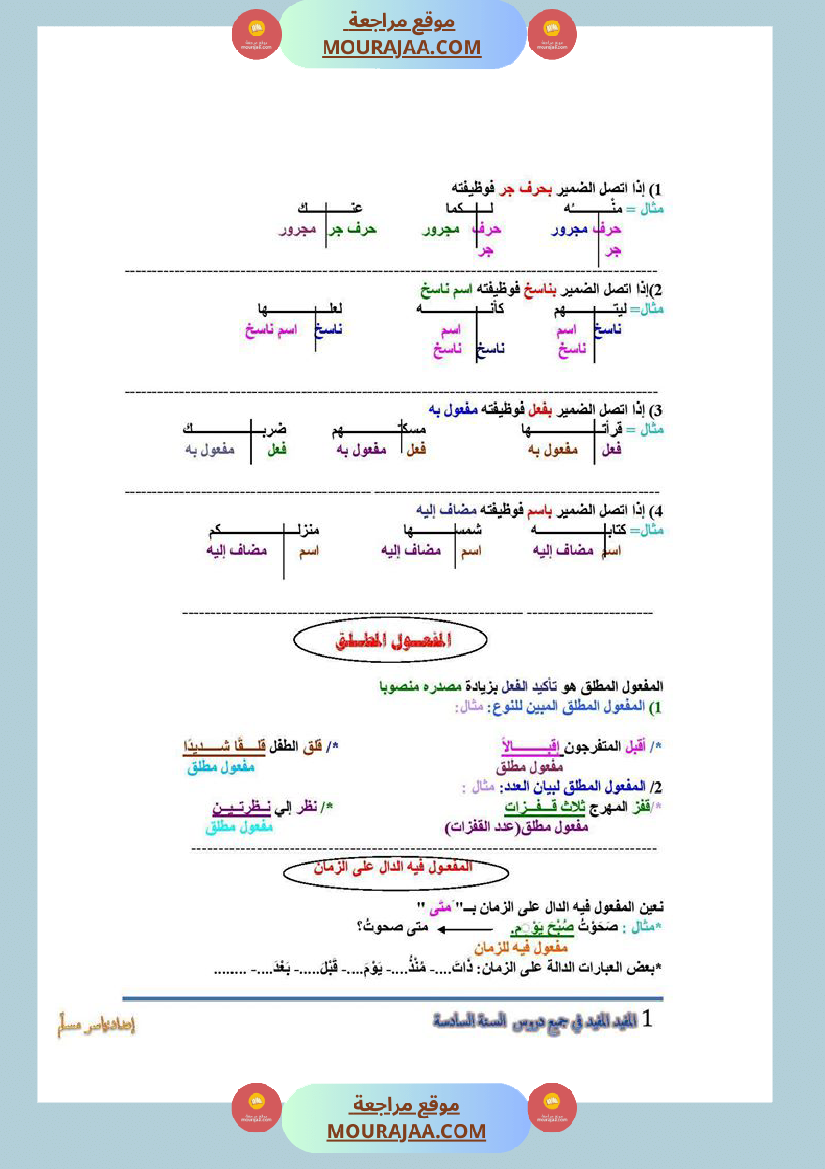 موقع مراجعة
MOURAJAA.COM
1) إذا اتصل الضمير بحرف جر فوظيفته
مثال = منْـــــــه لـــــكما عنـــــــــك
حرف مجرور حرف مجرور حرف جر مجرور
جر جر
2)إذا اتصل الضمير بناسخ فوظيفته اسم ناسخ
مثال= ليتـــــــــهم كأنـــــــــــه لعلـــــــــــــها
ناسخ اسم اسم ناسخ اسم ناسخ
ناسخ ناسخ ناسخ
3) إذا اتصل الضمير بفعل فوظيفته مفعول به
مثال = قرأتـــــــــــــها مسكتـــــــــهم ضربـــــــــــــك
فعل مفعول به فعل مفعول به فعل مفعول به
4) إذا اتصل الضمير باسم فوظيفته مضاف إليه
مثال= كتابـــــــــــــه شمســــــــها منزلـــــــــــــكم
اسم مضاف إليه اسم مضاف إليه اسم مضاف إليه
المفعـــول المطــلق
المفعول المطلق هو تأكيد الفعل بزيادة مصدره منصوبا
1) المفعول المطلق المبين للنوع: مثال:
*/ أقبل المتفرجون إقبـــــــالاً */ قلق الطفل قلـــــقًا شـــــديدًا
مفعول مطلق مفعول مطلق
2/ المفعول المطلق لبيان العدد: مثال :
*/قفز المهرج ثلاث قــفــزات */ نظر إلي نــظرتــيــن
مفعول مطلق(عدد القفزات) مفعول مطلق
المفعول فيه الدال على الزمان
نعين المفعول فيه الدال على الزمان بـــ" متى "
*مثال : صَحَوْتُ صُبْحَ يَوْمٍ. متى صحوتُ؟
مفعول فيه للزمان
*بعض العبارات الدالة على الزمان: ذَاتَ....- مُنْذُ....- يَوْمَ....- قَبْلَ.....- بَعْدَ....- ........
1 المفيد المفيد في جميع دروس السنة السادسة
موقع مراجعة
MOURAJAA.COM